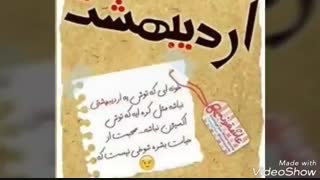 اردیبهشت
خونه ای که توش یه اردیبهشتی
نباشه مثل کره ایه که توش
اکسیژن نباشه. صحبت از
حیات بشره شوخی نیست که
Made with
VideoShow